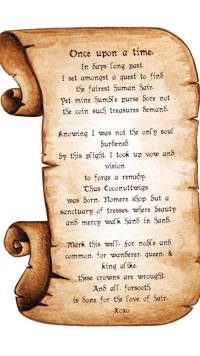 Once upon a time-
In days long past,
I set amongst a quest to find
the fairest human hair.
Yet mine humble purse bore not
the coin such treasures demand.
Knowing I was not the only soul
burdened
by this plight, I took up vow and
vision
to forge a remedy.
Thus Coconuttwigs
was born. Nomere shop, but a
sanctuary of tresses, where beauty
and mercy walk hand in hand.
Mark this well: for noble and
common, for wanderer, queen, &
king alike,
these crowns are wrought.
And all, forsooth,
is done for the love of hair.
-Xoxo